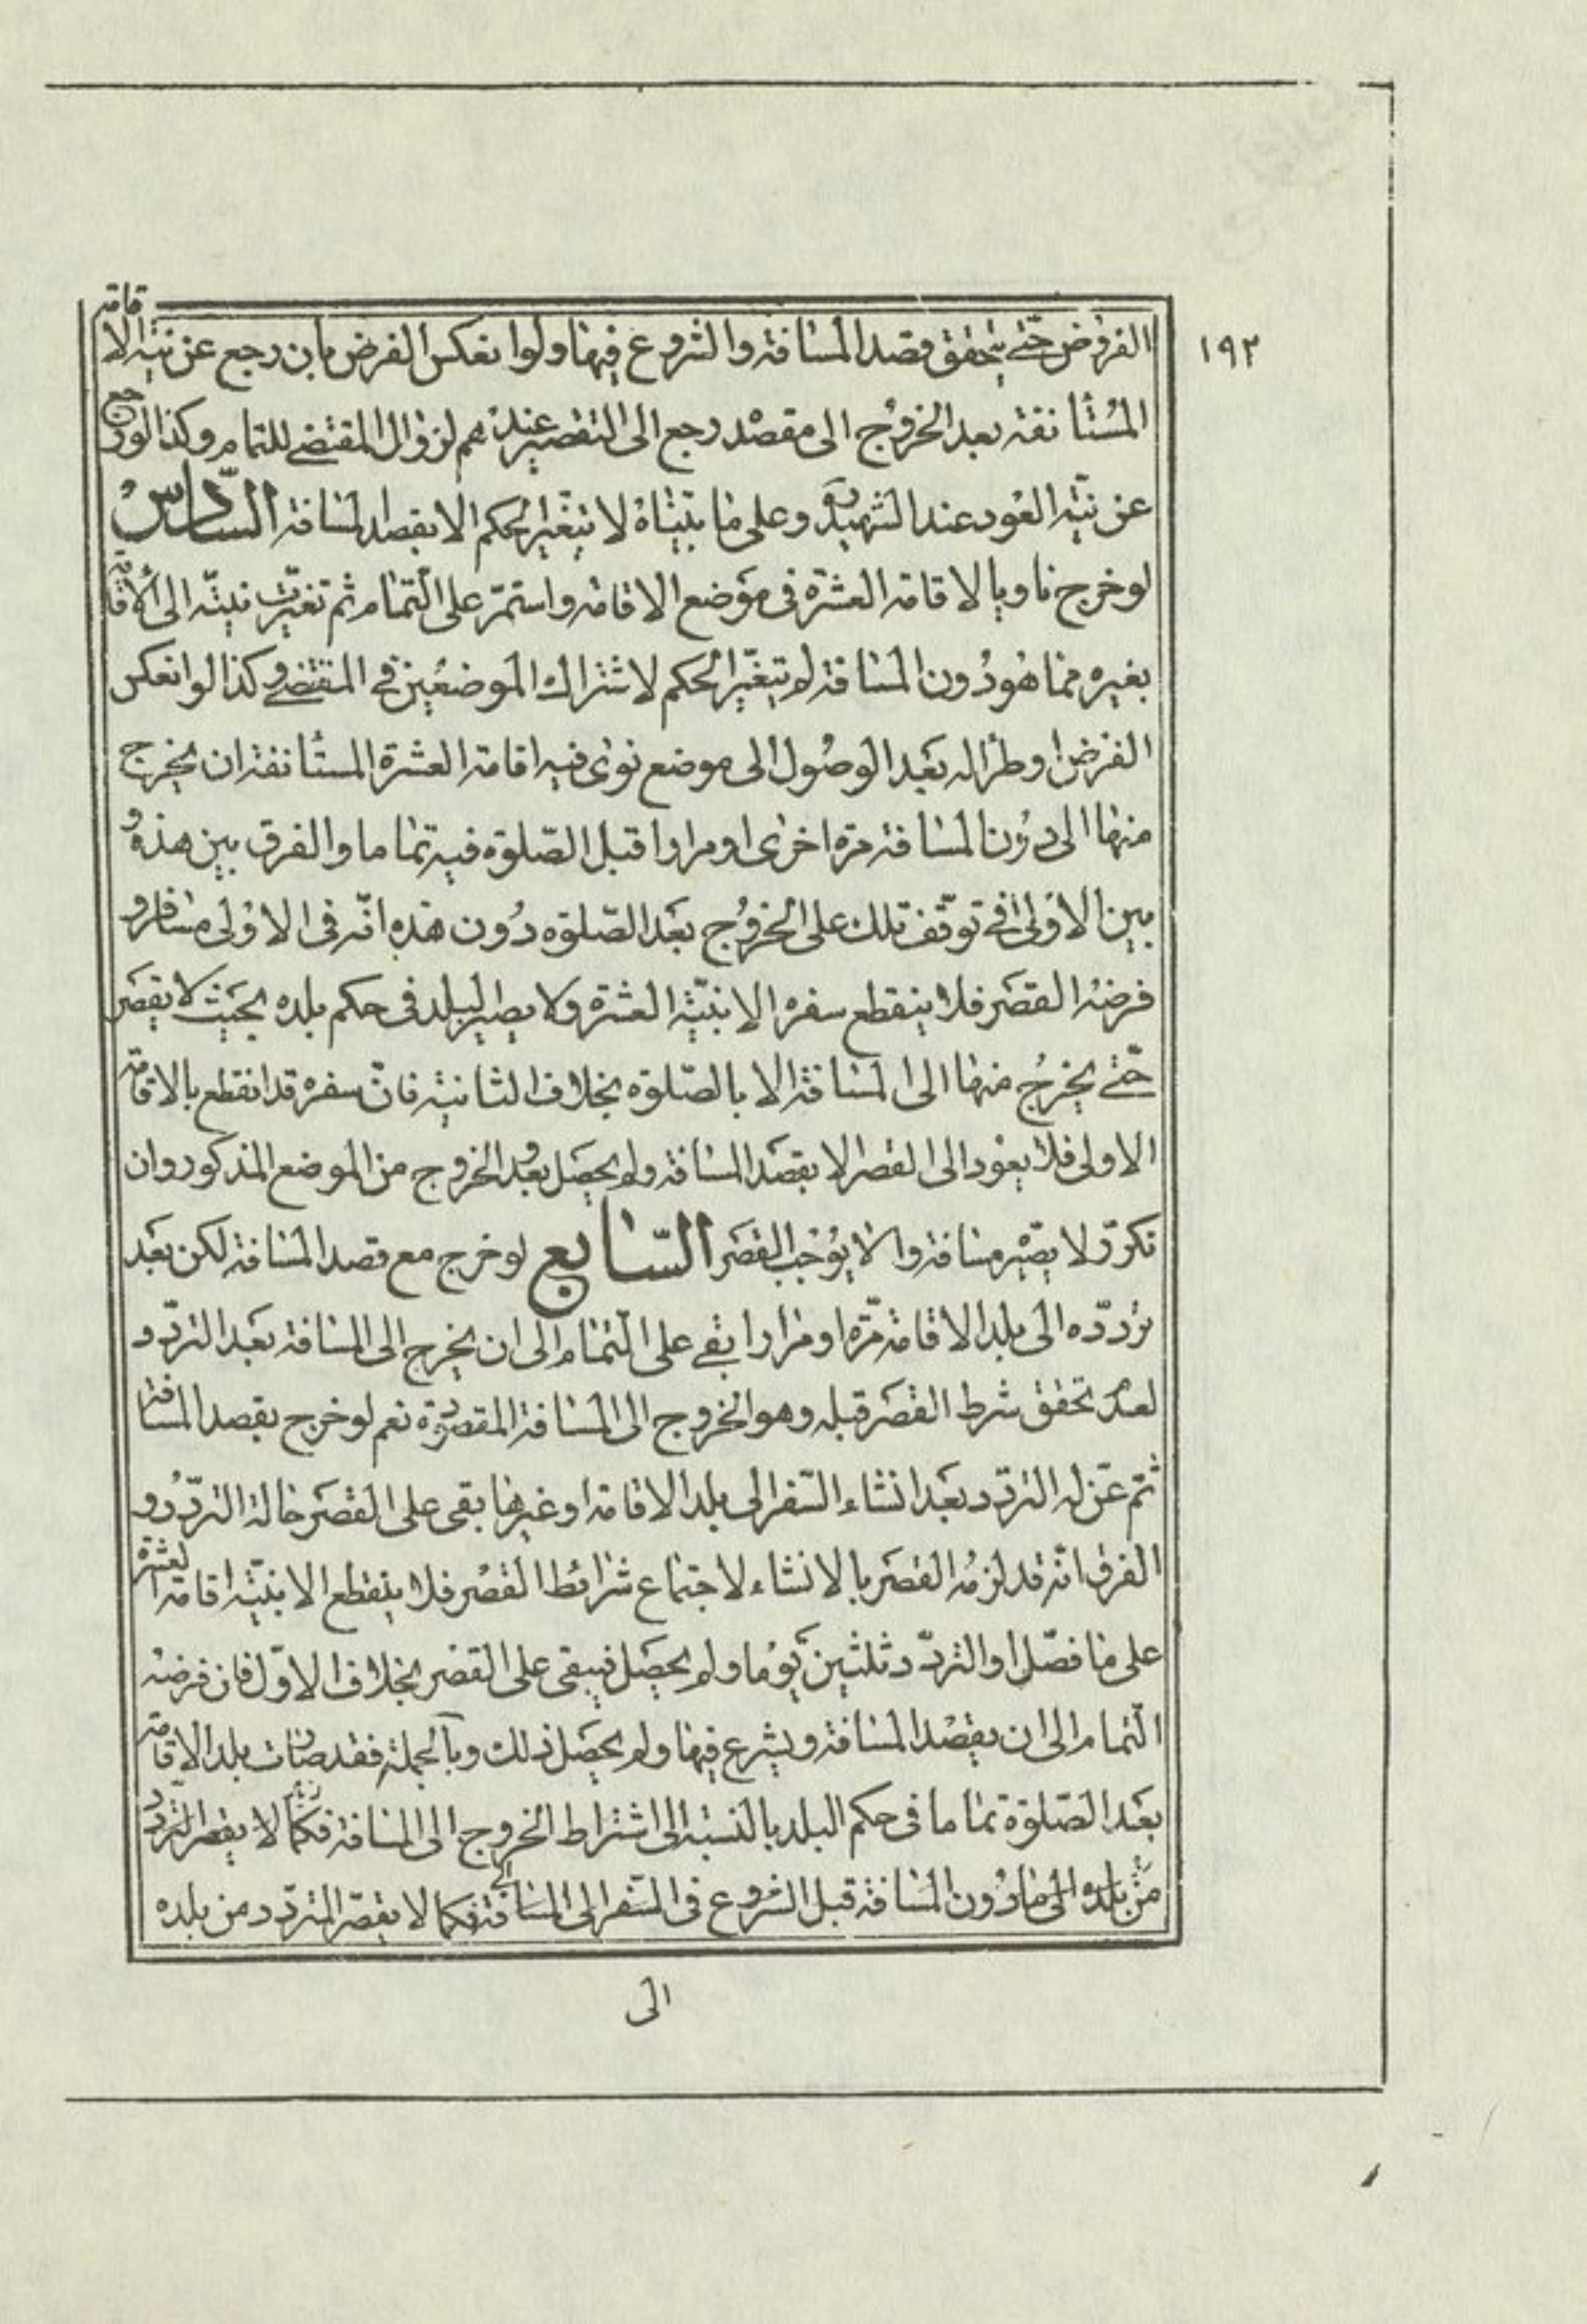 ١٩٢
الفروض حتى يتحقق قصد المسافة والشروع فيها ولو انعكس الفرض بان رجع عن نية الاقامة
المستأنفة بعد الخروج الى مقصده رجع الى التقصير عندهم لزوال المقتضى للتمام وكذا لو رجع
عن نية العود عند الشهيد ره وعلى ما بيناه لا يتغير الحكم الا بقصد المسافة السادس
لو خرج ناويا لاقامة العشرة في موضع الاقامة واستمر على التمام ثم تغيرت نيته الى الاقامة
بغيره مما هو دون المسافة لم يتغير الحكم لاشتراك الموضعين في المقتضى وكذا لو انعكس
الفرض او طرأ له بعد الوصول الى موضع نوى فيه اقامة العشرة المستأنفة ان يخرج
منها الى دون المسافة مرة اخرى او مرارا قبل الصلوة فيه تماما والفرق بين هذه و
بين الاولى في توقف تلك على الخروج بعد الصلوة دون هذه انه في الاولى مسافر و
فرضه القصر فلا ينقطع سفره الا بنية العشرة ولا يصير البلد في حكم بلده بحيث لا يقصر
حتى يخرج منها الى المسافة الا بالصلوة بخلاف الثانية فان سفره قد انقطع بالاقامة
الاولى فلا يعود الى القصر الا بقصد المسافة ولم يحصل بعد والخروج من الموضع المذكور وان
تكرر لا يصير مسافة والا يوجب القصر السابع لو خرج مع قصد المسافة لكن بعد
تردده الى بلد الاقامة مرة او مرارا بقى على التمام الى ان يخرج الى المسافة بعد التردد
لعدم تحقق شرط القصر قبله وهو الخروج الى المسافة المقصودة نعم لو خرج بقصد المسافة
ثم عن له التردد بعد انشاء السفر الى بلد الاقامة او غيرها بقى على القصر حالة التردد و
الفرق انه قد لزمه القصر بالانشاء لاجتماع شرائط القصر فلا ينقطع الا بنية اقامة العشرة
على ما فصل او التردد ثلثين يوما ولم يحصل فيبقى على القصر بخلاف الاول فان فرضه
التمام الى ان يقصد المسافة ويشرع فيها ولم يحصل ذلك وبالجملة فقد صارت بلد الاقامة
بعد الصلوة تماما في حكم البلد بالنسبة الى اشتراط الخروج الى المسافة فكما لا يقصر المتردد
من بلده الى ما دون المسافة قبل الشروع في السفر الى المسافة فكما لا يقصر المتردد من بلده
الى